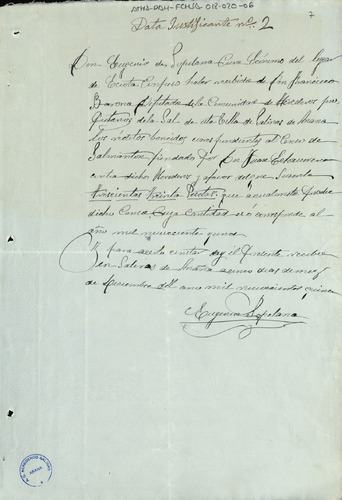 ATHA-DAH-FCHSG-013-020-06
Data Justificante nº 2
7
Don Eugenio de Sopelana Cura Ecónomo del lugar
de Tuesta Confieso haber recibido de Don Francisco
Barrona Diputado de la Comunidad de Herederos pro-
pietarios de la Sal de dha Villa de Salinas de Añana
los réditos vencidos correspondientes al Censo de
Salmantón fundado Por Don Juan Echavarria
contra dichos Herederos y a favor
trescientas treinta Pesetas que anualmente produce
dicho Censo cuya Cantidad corresponde al
año mil novecientos quince
Y para que conste doy el Presente recibo
en Salinas de Añana a cinco días de mes
de Diciembre del año mil novecientos quince
Eugenio Sopelana
AÑANA